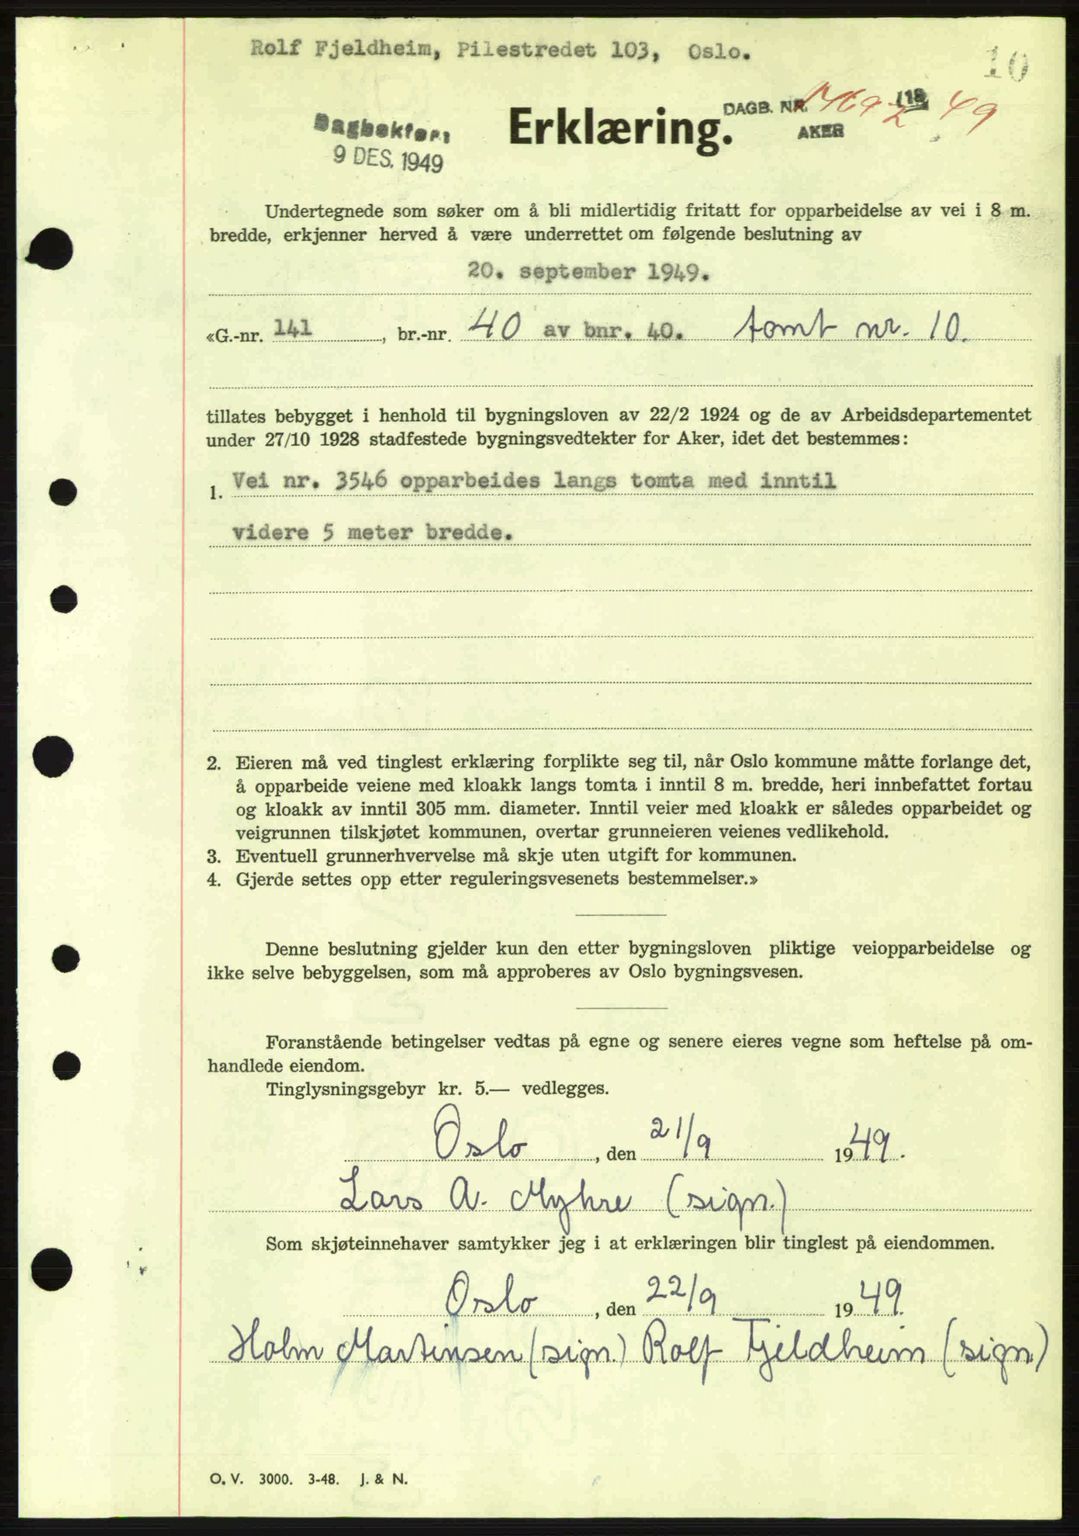 Rolf Fjeldheim, Pilestredet 103, Oslo.
10
Dagbokført
9 DES. 1949
Erklæring.
DAGB. NR. 49
AKER
Undertegnede som søker om å bli midlertidig fritatt for opparbeidelse av vei i 8 m.
bredde, erkjenner herved å være underrettet om følgende beslutning av
20. september 1949.
«G.-nr. 141, br.-nr. 40 av bnr. 40. tomt nr. 10.
tillates bebygget i henhold til bygningsloven av 22/2 1924 og de av Arbeidsdepartementet
under 27/10 1928 stadfestede bygningsvedtekter for Aker, idet det bestemmes:
1. Vei nr. 3546 opparbeides langs tomta med inntil
videre 5 meter bredde.
2. Eieren må ved tinglest erklæring forplikte seg til, når Oslo kommune måtte forlange det,
å opparbeide veiene med kloakk langs tomta i inntil 8 m. bredde, heri innbefattet fortau
og kloakk av inntil 305 mm. diameter. Inntil veier med kloakk er således opparbeidet og
veigrunnen tilskjøtet kommunen, overtar grunneieren veienes vedlikehold.
3. Eventuell grunnerhvervelse må skje uten utgift for kommunen.
4. Gjerde settes opp etter reguleringsvesenets bestemmelser.»
Denne beslutning gjelder kun den etter bygningsloven pliktige veiopparbeidelse og
ikke selve bebyggelsen, som må approberes av Oslo bygningsvesen.
Foranstående betingelser vedtas på egne og senere eieres vegne som heftelse på om-
handlede eiendom.
Tinglysningsgebyr kr. 5.— vedlegges.
Oslo, den 21/9 1949.
Lars A. Myhre (sign.)
Som skjøteinnehaver samtykker jeg i at erklæringen blir tinglest på eiendommen.
Oslo, den 22/9 1949.
Holm Martinsen (sign.) Rolf Fjeldheim (sign.)
O. V. 3000. 3-48. J. & N.